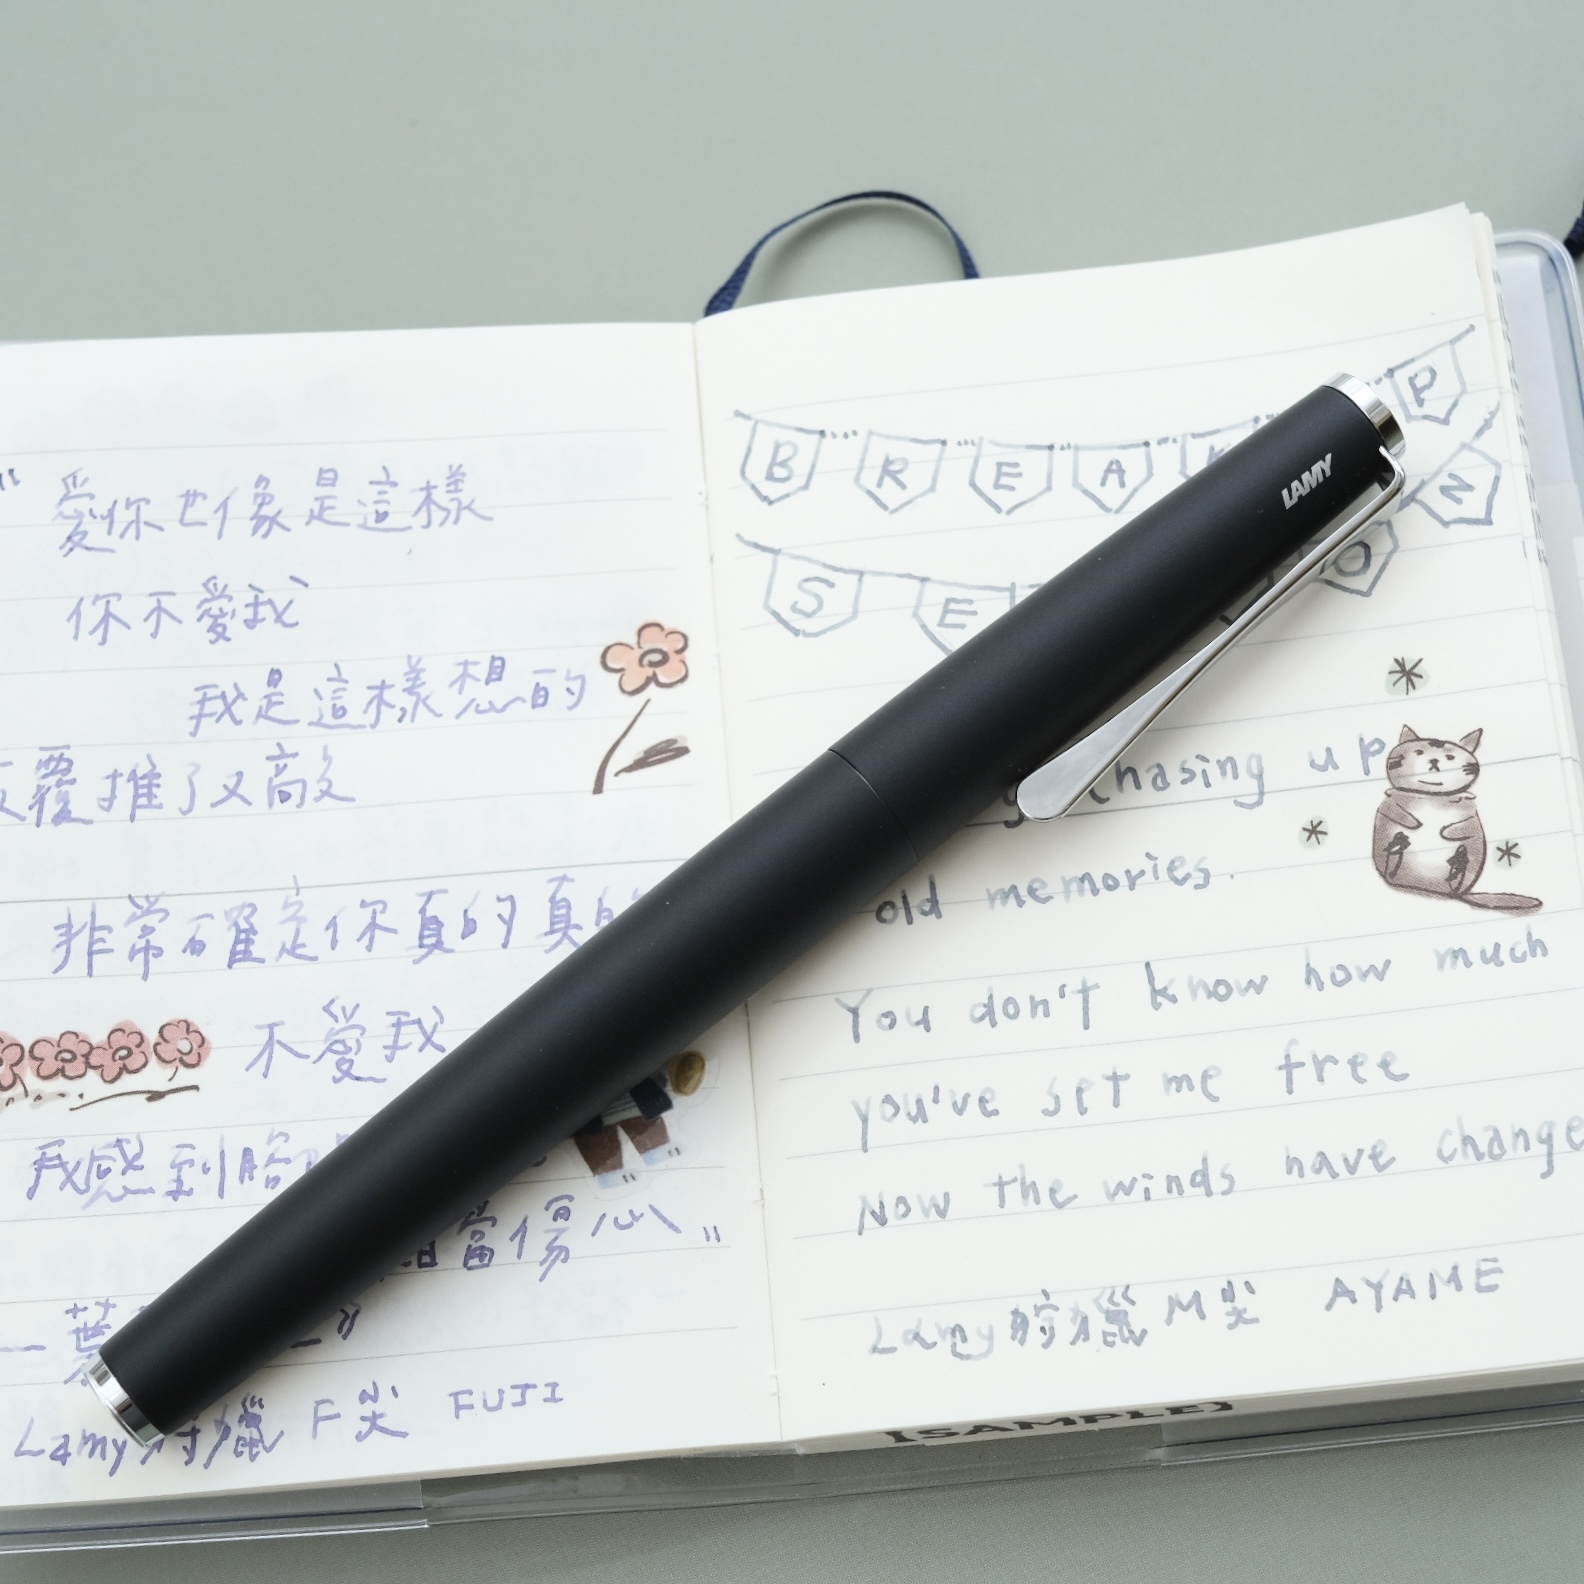 愛你也像是這樣
你不愛我
我是這樣想的
覆推了又敲
非常確定你真的真
不愛我
我感到
當傷心"
一葉
Lamy 狩獵 F尖 FUJI
BREAK P
SE ON
LAMY
chasing up
old memories.
You don't know how much
you've set me free
Now the winds have change
Lamy 狩獵 M尖 AYAME
[SAMPLE]